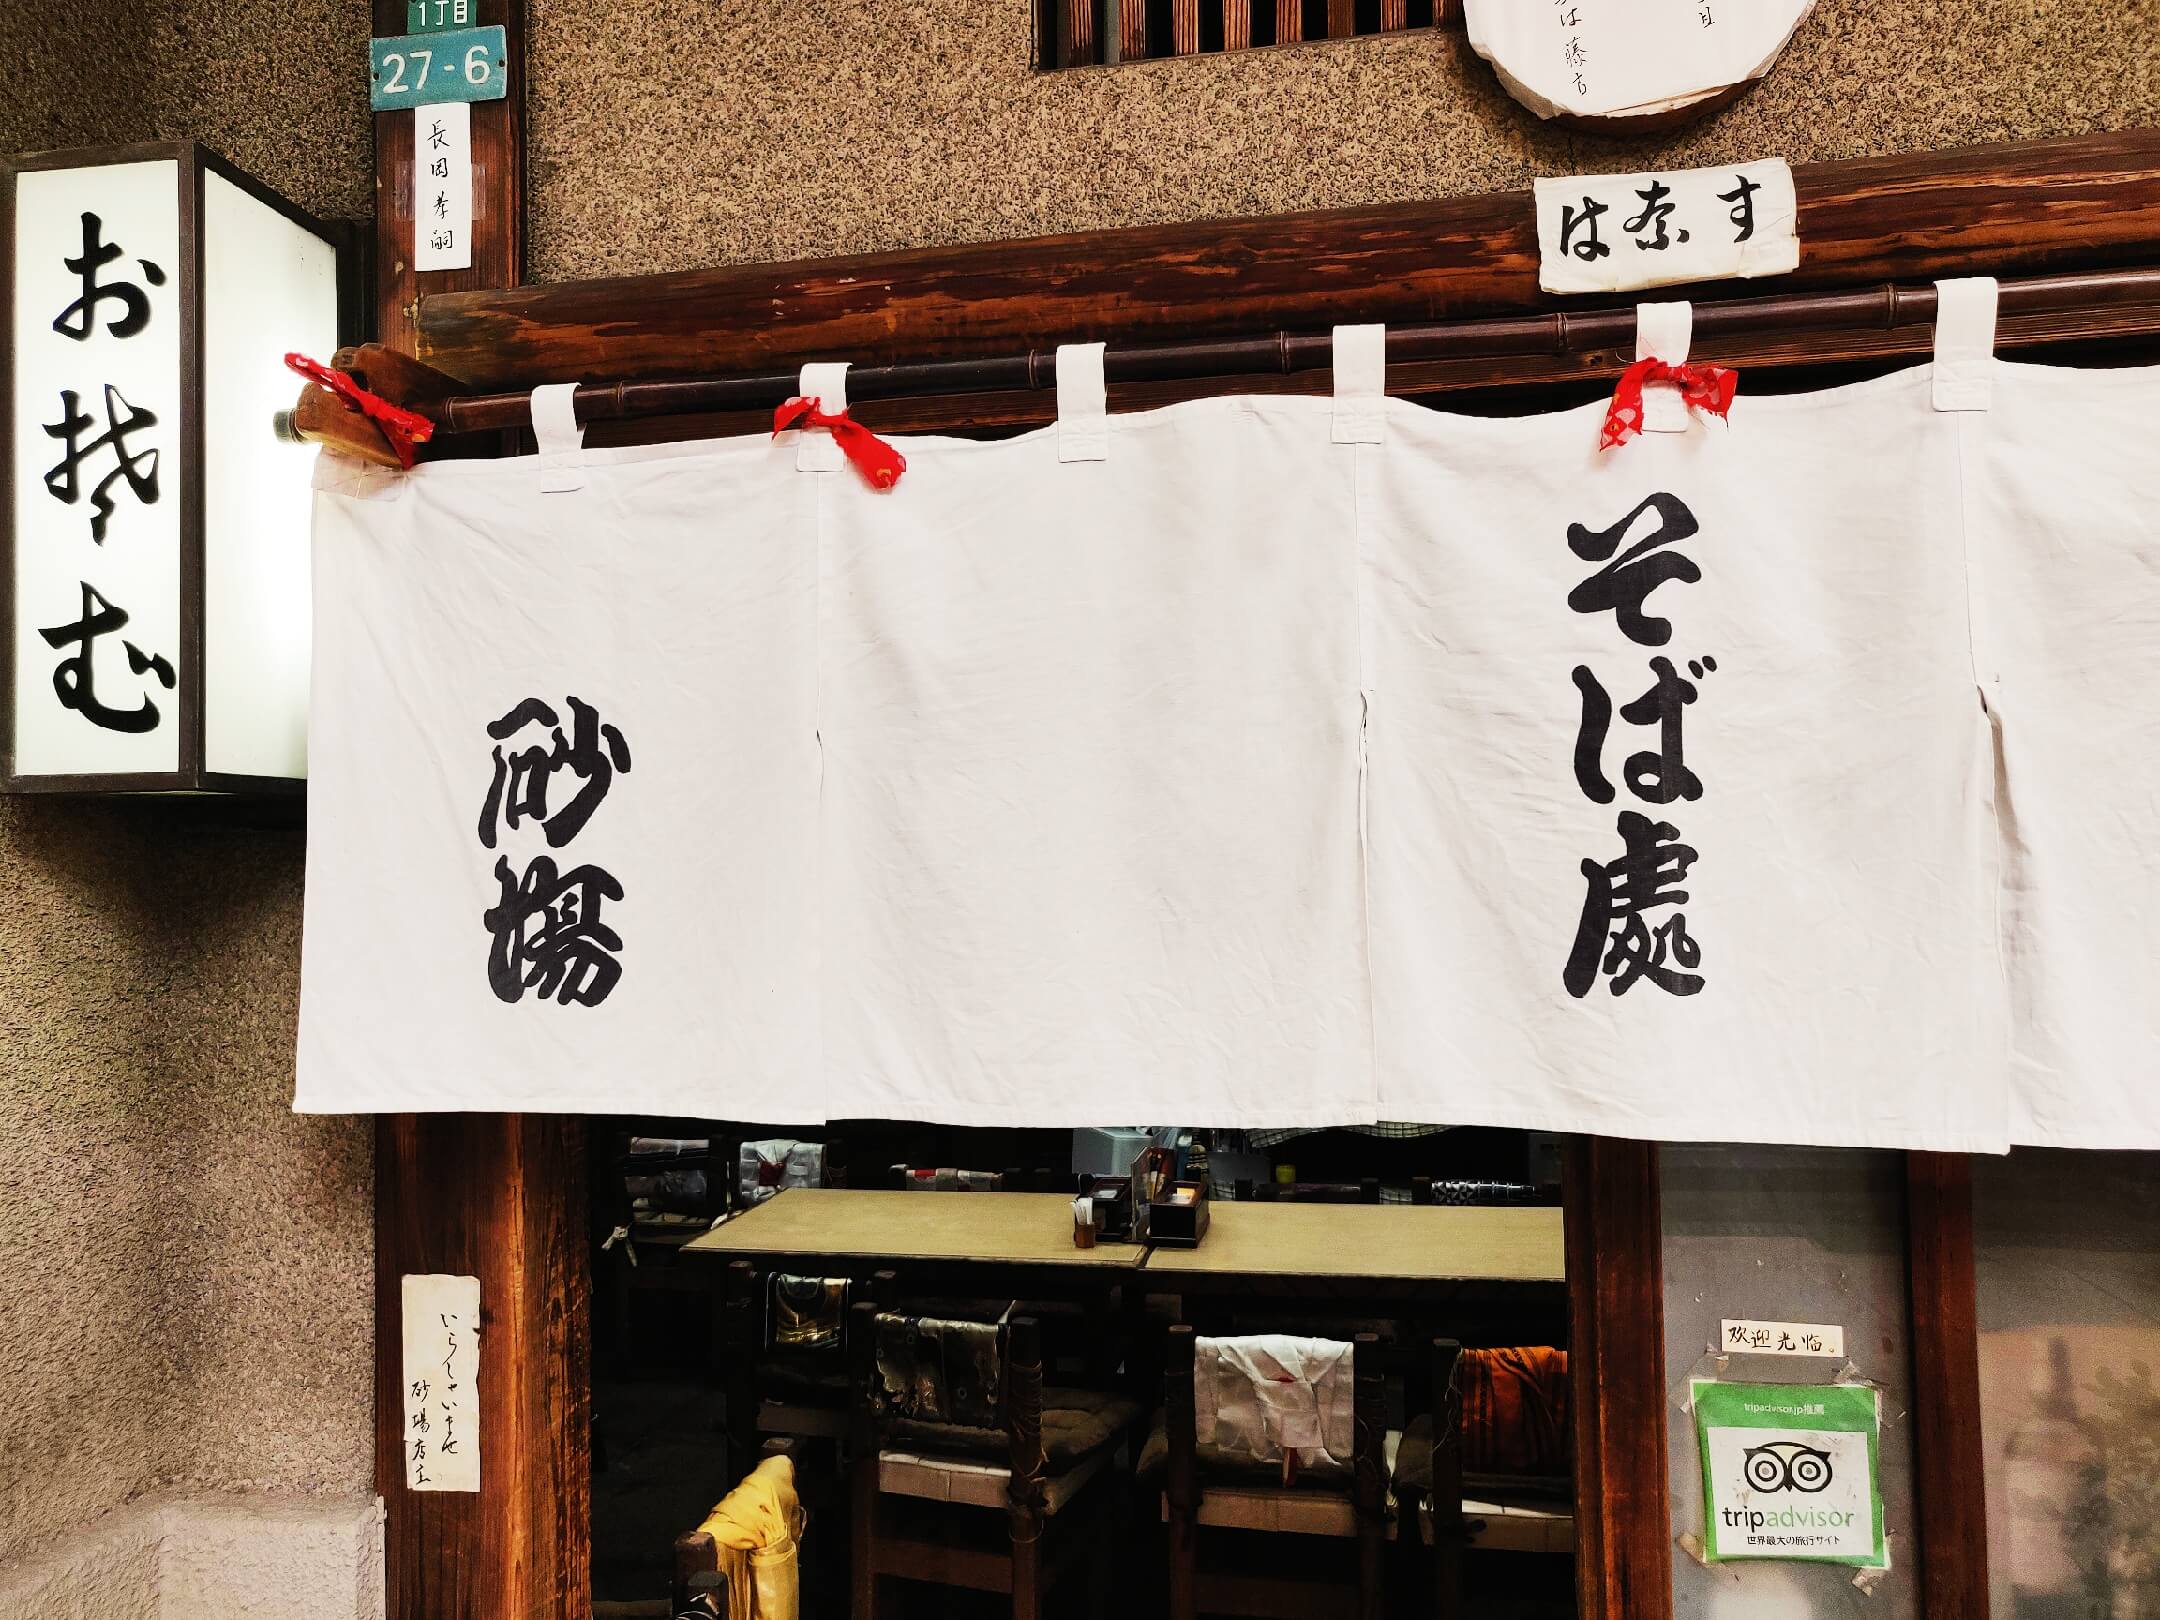 1丁目
27-6
長岡孝嗣
は奈す
おそむ
そば處
砂場
いらしゃいませ
砂場店主
欢迎光临。
tripadvisor.jp推薦
tripadvisor
世界最大の旅行サイト